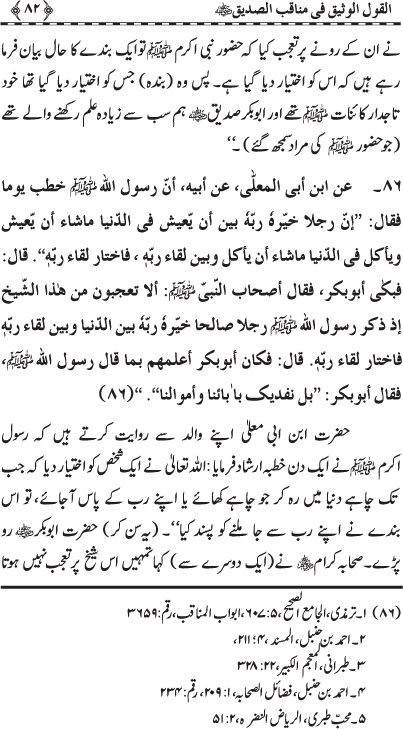 القول الوثیق فی مناقب الصدیق ﷛ ﴿۸۲﴾
نے ان کے رونے پر تعجب کیا کہ حضور نبی اکرم ﷺ تو ایک بندے کا حال بیان فرما
رہے ہیں کہ اس کو اختیار دیا گیا ہے۔ پس وہ (بندہ) جس کو اختیار دیا گیا تھا خود
تاجدارِ کائنات ﷺ تھے اور ابوبکر صدیق ﷛ ہم سب سے زیادہ علم رکھنے والے تھے
(جو حضور ﷺ کی مراد سمجھ گئے) ۔‘‘
۸۶۔ عن ابن أبی المعلّٰی، عن أبیه، أنّ رسول اللہ ﷺ خطب یوما
فقال: ’’إنّ رجلا خیّرهٗ ربّهٗ بین أن یّعیش فی الدّنیا ماشاء أن یّعیش
ویأکل فی الدّنیا ماشاء أن یأکل وبین لقاء ربّهٖ ، فاختار لقاء ربّهٖ‘‘. قال:
فبکٰی أبوبکر، فقال أصحاب النّبیّ ﷺ: ألا تعجبون من هٰذا الشّیخ
إذ ذکر رسول اللہ ﷺ رجلا صالحا خیّرهٗ ربّهٗ بین الدّنیا وبین لقاء ربّهٖ
فاختار لقاء ربّهٖ. قال: فکان أبوبکر أعلمهم بما قال رسول اللہ ﷺ،
فقال أبوبکر: ’’بل نفدیک بآبائنا وأموالنا‘‘. ‘‘(۸۶)
حضرت ابن ابی معلیٰ اپنے والد سے روایت کرتے ہیں کہ رسول
اکرم ﷺ نے ایک دن خطبہ ارشاد فرمایا: اللہ تعالیٰ نے ایک شخص کو اختیار دیا کہ جب
تک چاہے دنیا میں رہ کر جو چاہے کھائے یا اپنے رب کے پاس آجائے، تو اس
بندے نے اپنے رب سے جا ملنے کو پسند کیا‘‘۔ (یہ سن کر) حضرت ابوبکر ﷛ رو
پڑے۔ صحابہ کرام ﷢ نے (ایک دوسرے سے) کہا تمہیں اس شیخ پر تعجب نہیں ہوتا
(۸۶) ۱۔ ترمذی، الجامع الصحیح، ۵: ۶۰۷، ابواب المناقب، رقم: ۳۶۵۹
۲۔ احمد بن حنبل، المسند، ۴: ۲۱۱
۳۔ طبرانی، المعجم الکبیر، ۲۲: ۳۲۸
۴۔ احمد بن حنبل، فضائل الصحابہ، ۱: ۲۰۹، رقم: ۲۳۴
۵۔ محب طبری، الریاض النضرہ، ۲: ۵۱